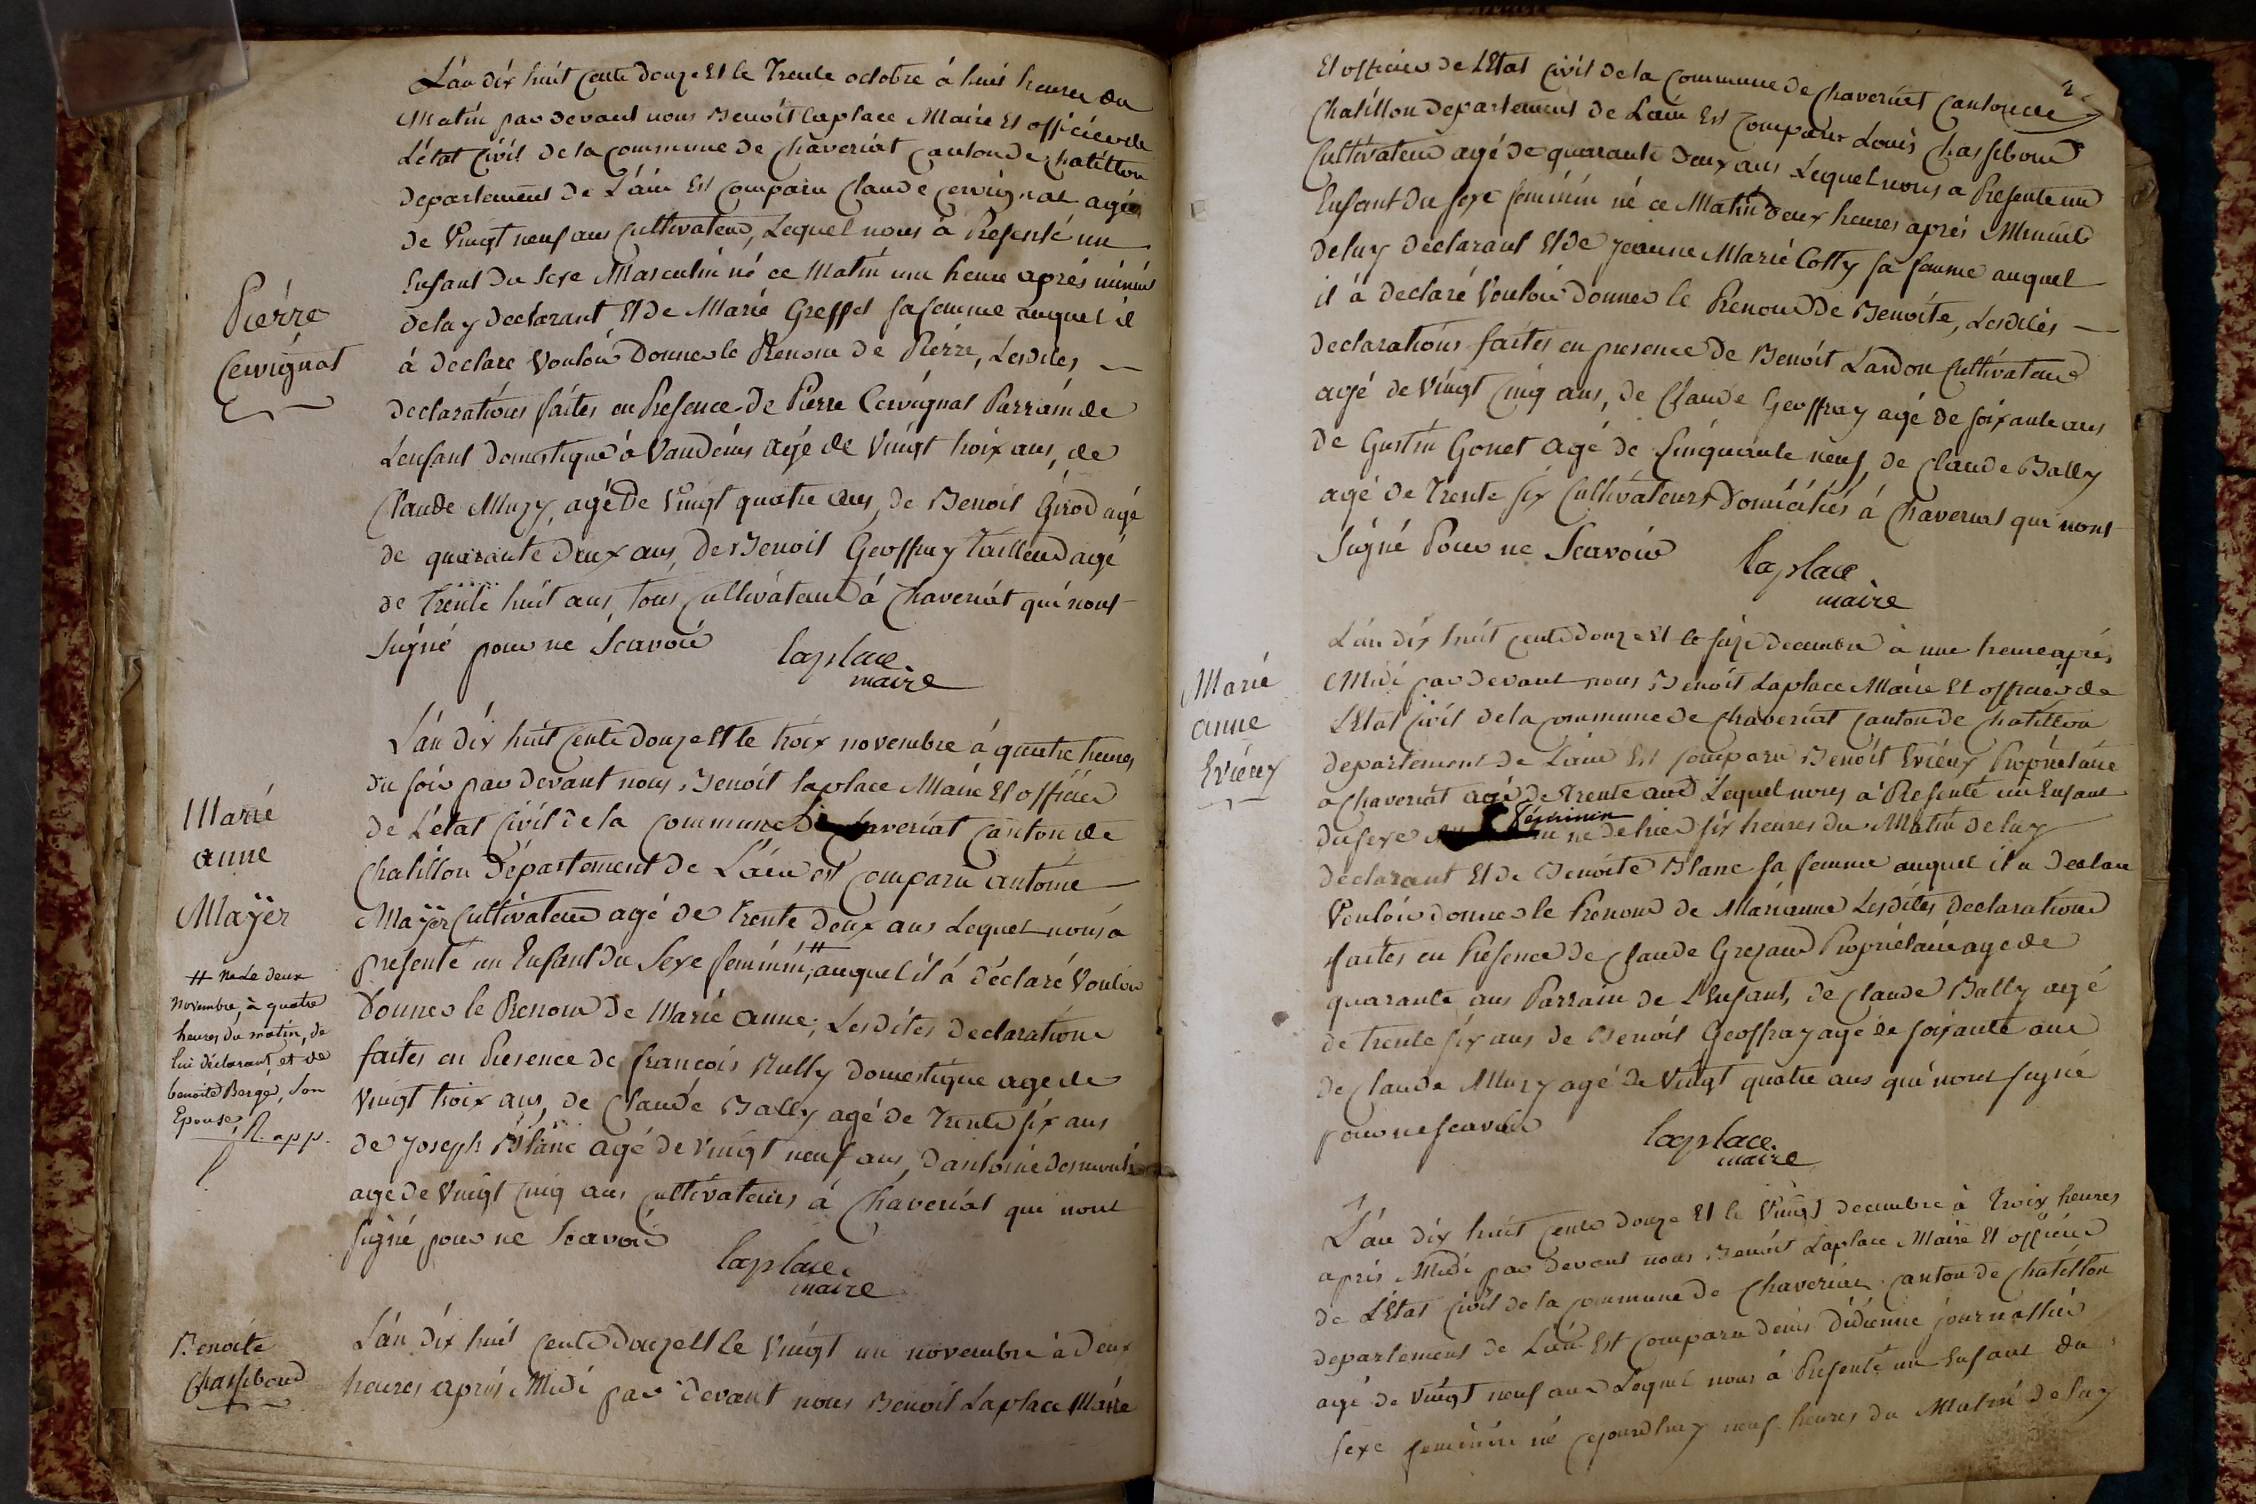 L'an dix huit cents douze Et le Trente octobre à huit heures du
Matin par devant nous Benoît Laplace Maire Et officier de
L'état Civil de la Commune de Chaveriat Canton de Chatillon
Departement de L'ain Est Comparu Claude Cervignat agé
de Vingt neuf ans Cultivateur, Lequel nous à Presenté un
Enfant du Sexe Masculin né ce Matin une heure après minuit
de luy declarant Et de Marie Greffet sa femme auquel il
à declaré Vouloir Donner le Prenom de Pierre, Lesdites
declarations faites en Presence de Pierre Cervignat Parrain de
L'enfant domestique à Vandeins agé de Vingt troix ans, de
Claude Muzy, agé De Vingt quatre ans, de Benoit Girod agé
de quarante Deux ans, de Benoit Geoffray Tailleur agé
de Trente huit ans, tous Cultivateurs à Chaveriat qui n'ont
Signé pour ne Scavoir
laplace
maire
Pierre
Cervignat
L'an dix huit Cents Douze Et le troix novembre à quatre heures
du soir par devant nous Benoît laplace Maire Et officier
de L'état Civil de la Commune de Chaveriat Canton de
Chatillon Département de L'ain est Comparu antoine
Maÿer Cultivateur agé de trente deux ans Lequel nous à
presenté un Enfant Du Sexe feminin, # auquel il à déclaré Vouloir
Donner le Prenom de Marie anne; Lesdites declarations
faites en Presence de françois Nully domestique agé de
Vingt troix ans, de Claude Bally agé de Trente six ans
de Joseph Blanc agé de Vingt neuf ans, d'antoine
agé de Vingt Cinq ans Cultivateurs à Chaveriat qui n'ont
signé pour ne Scavoir
laplace
maire
Marie
anne
Maÿer
# né Le deux
novembre, à quatre
heures du matin, de
lui déclarant, et de
benoite Berger, Son
Epouse,
R. app.
L'an dix huit Cents Douze Et Le Vingt un novembre à Deux
heures après Midi par devant nous Benoit Laplace Maire
Benoite
Chassiboud
Et officier de L'Etat Civil de la Commune de Chaveriat Canton de
Chatillon departement de L'ain Est Comparu Louis Chassiboud
Cultivateur agé de quarante Deux ans Lequel nous a Presenté un
Enfant Du sexe feminin né ce Matin deux heures après Minuit
de luy Declarant Et de Jeanne Marie Cotty sa femme auquel
il à declaré Vouloir Donner le Prenom De Benoite, Lesdites
declarations faites en presence de Benoit Lardon Cultivateur
agé de Vingt Cinq ans, de Claude Geoffray agé de soixante ans
de Gustin Gonet agé de Cinquante neuf, de Claude Bally
agé de Trente six Cultivateurs Domiciliés à Chaveriat qui n'ont
Signé Pour ne Scavoir
laplace
maire
L'an dix huit Cents Douze Et le seize decembre à une heure après
Midi par devant nous Benoit Laplace Maire Et officier de
L'Etat Civil de la Commune de Chaveriat Canton de Chatillon
departement de L'ain Est Comparu Benoit Evieux Propriétaire
à Chaveriat agé de Trente ans Lequel nous à Presenté un Enfant
du sexe féminin né de hier six heures du Matin de luy
declarant Et de Benoite Blanc sa femme auquel il a Declaré
Vouloir donner le Prenom de Marianne Lesdites Declarations
faites en Presence de Claude Grezaud Propriétaire agé de
quarante ans Parrain de L'Enfant, de Claude Bally agé
de trente six ans de Benoit Geoffray agé de soixante ans
de Claude Muzy agé De Vingt quatre ans qui n'ont signé
pour ne scavoir
laplace
maire
Marie
anne
Evieux
L'an dix huit Cents Douze Et le Vingt decembre à Troix heures
après Midi par devant nous Benoit Laplace Maire Et officier
de L'Etat Civil de la Commune de Chaveriat Canton de Chatillon
departement de L'ain Est Comparu denis Didienne journallier
agé de Vingt neuf ans Lequel nous à Presenté un Enfant du
sexe feminin né cejourdhuy neuf heures du Matin de luy